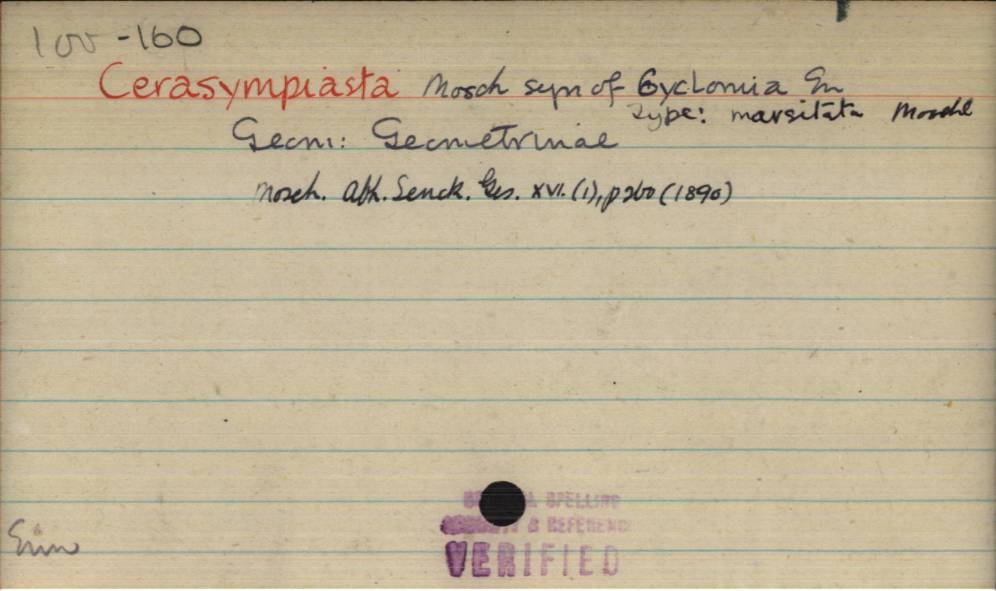 100-160
Cerasympiasta Mosch syn of Cyclomia Gn
Type: marsitata Moschl
Geom: Geometrinae
Mosch. Abh. Senck. Ges. XVI. (1), p 260 (1890)
SPELLING
& REFERENCE
VERIFIED